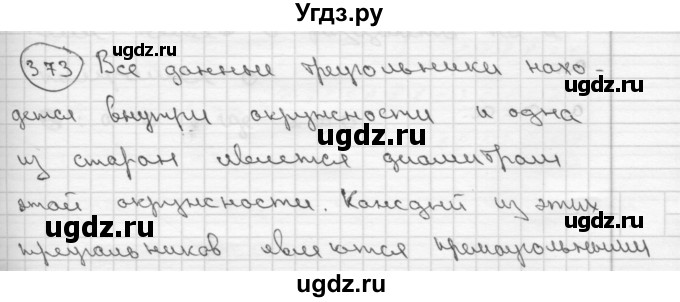 Угдз.ру
373 Все данные треугольники нахо-
дятся внутри окружности и одна
из старан является диаметрам
этой окружности. Каждый из этих
треугольников являются прямоугольными
ugdz.ru ugdz.ru
ugdz.ru ugdz.ru
ugdz.ru ugdz.ru
ugdz.ru ugdz.ru